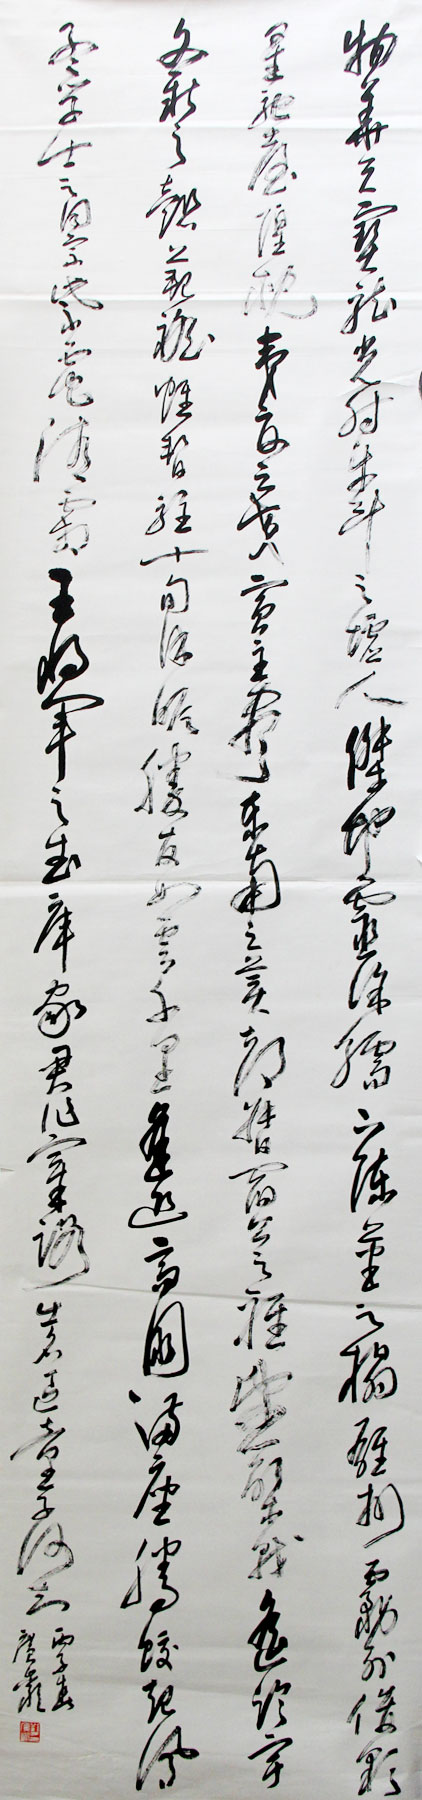 物華天寶龍光射牛斗之墟人傑地靈徐孺下陳蕃之榻雄州霧列俊彩
星馳臺隍枕夷夏之交賓主盡東南之美都督閻公之雅望棨戟遙臨宇
文新州之懿範襜帷暫駐十旬休暇勝友如雲千里逢迎高朋滿座騰蛟起鳳
孟學士之詞宗紫電清霜王將軍之武庫家君作宰路出名區童子何知
丙子春